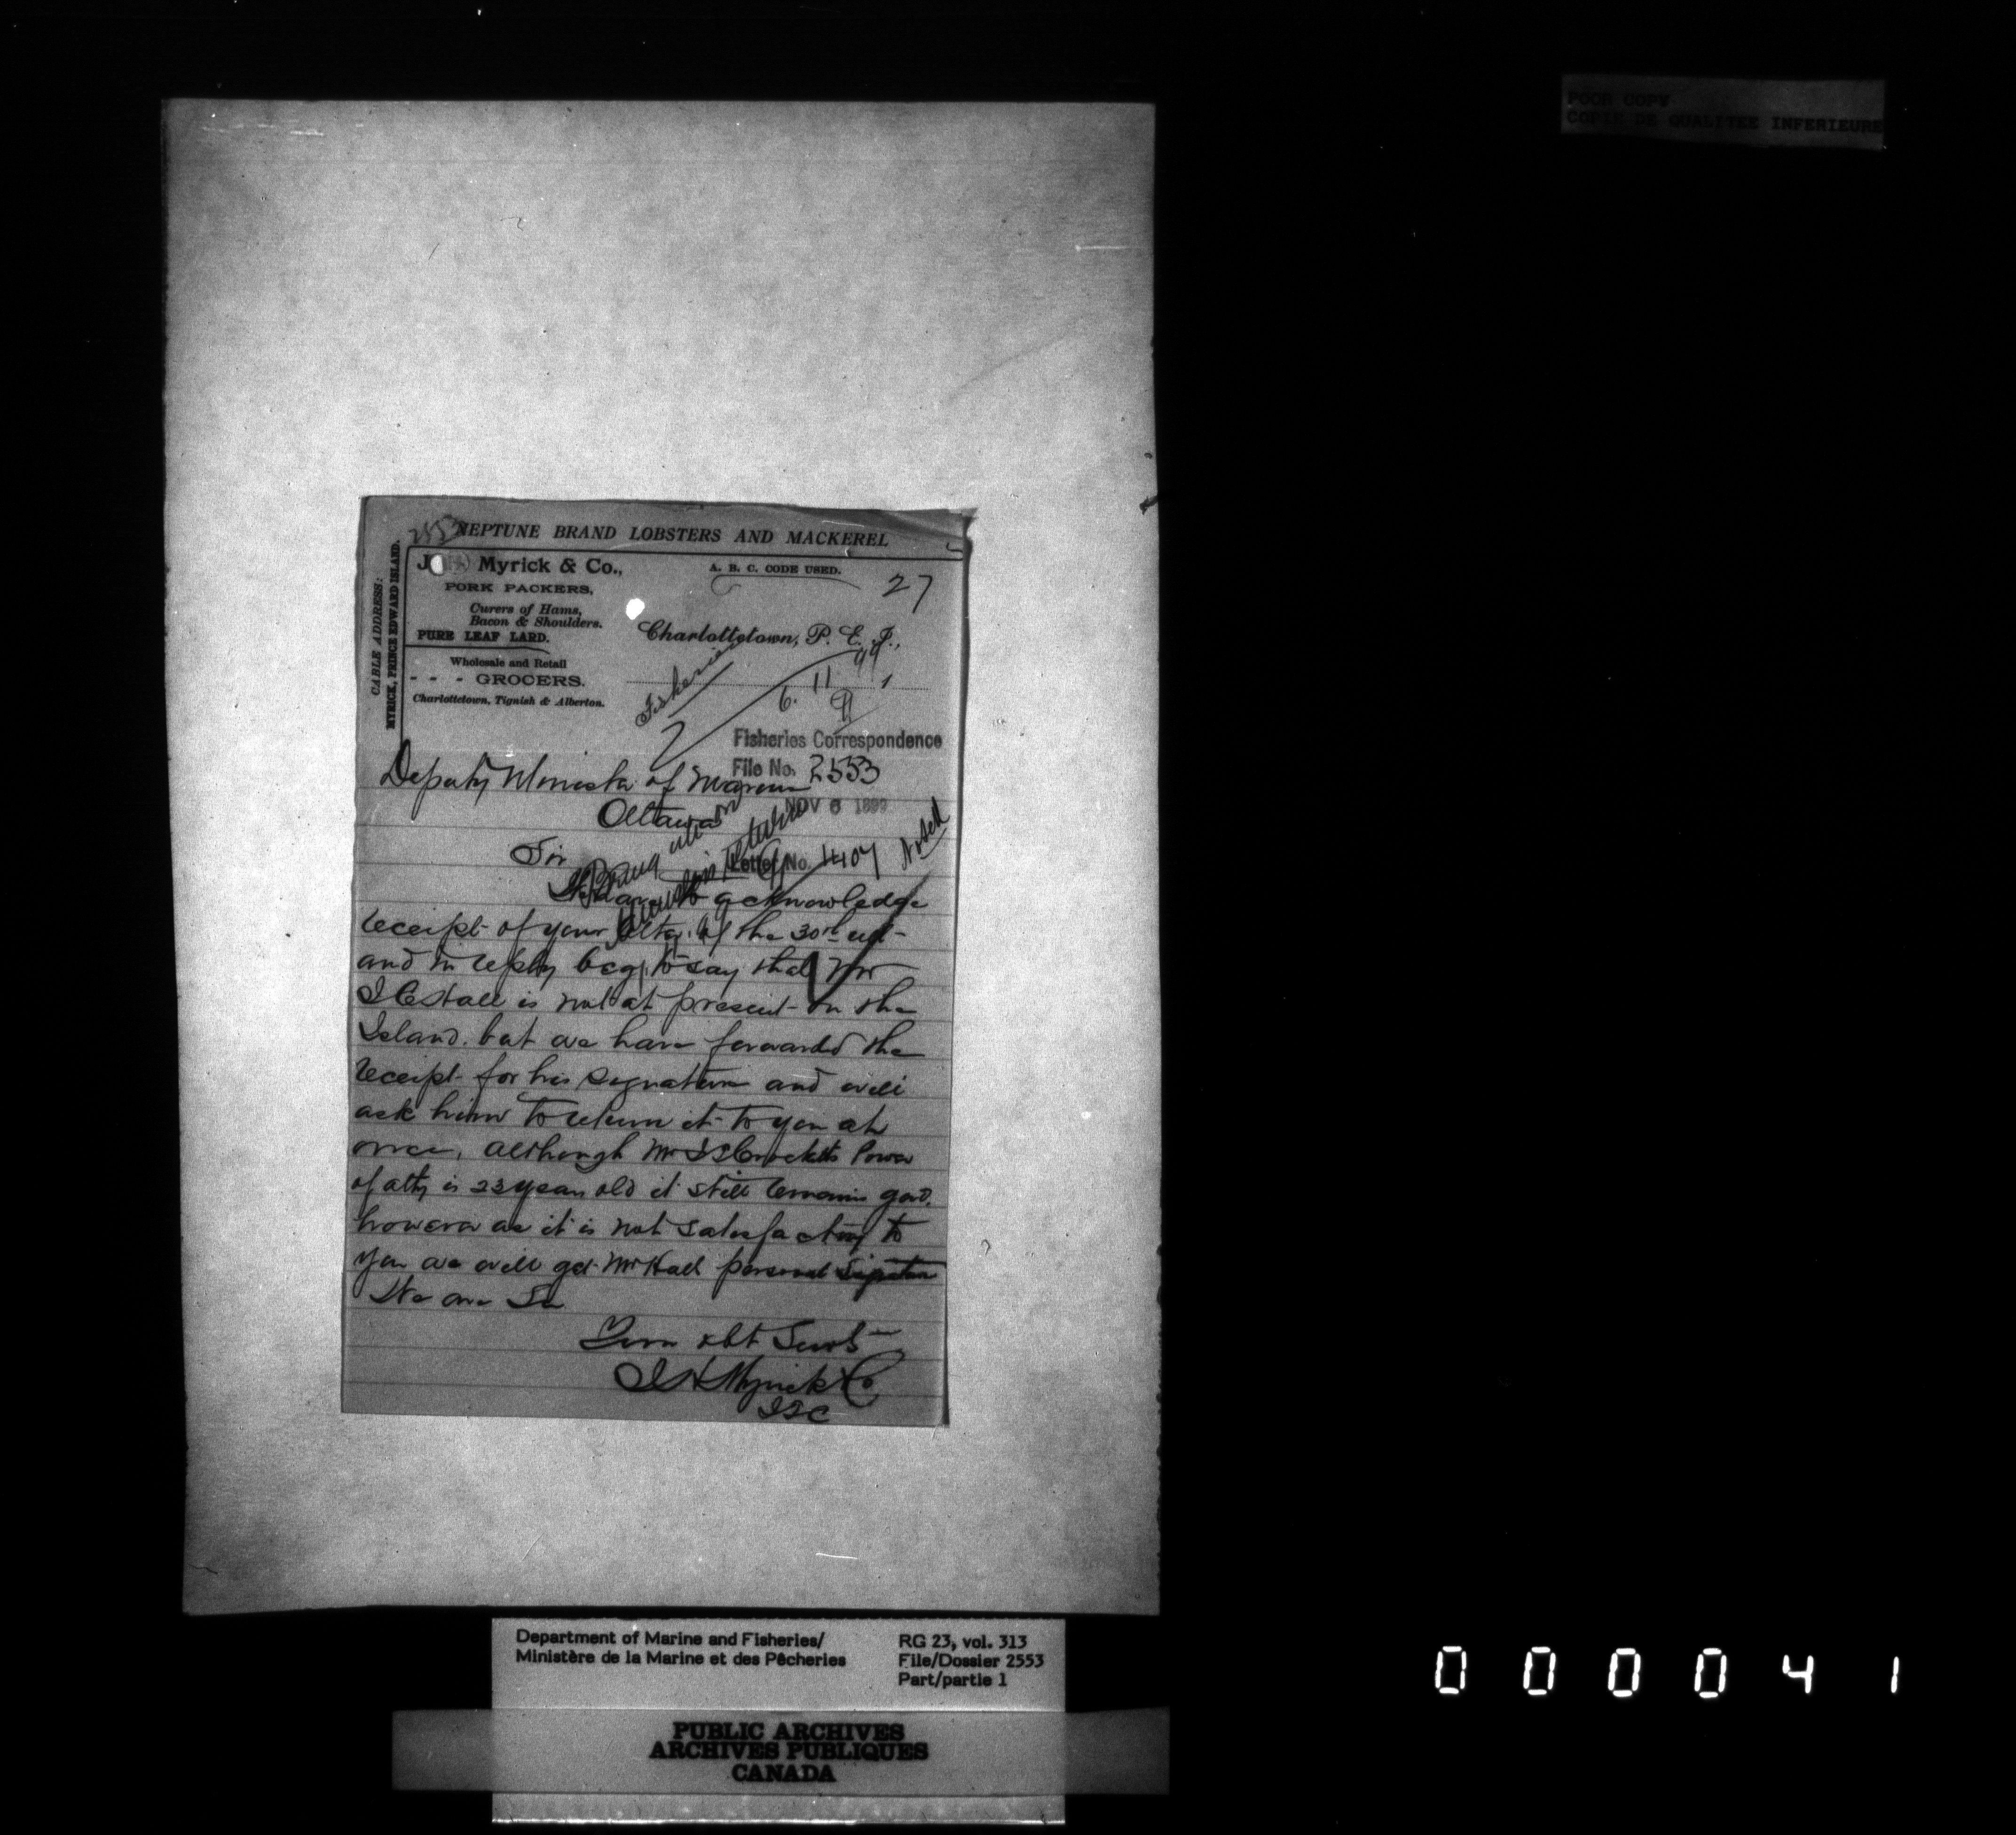 POOR COPY
COPIE DE QUALITEE INFERIEURE
2553
NEPTUNE BRAND LOBSTERS AND MACKEREL
CABLE ADDRESS:
MYRICK, PRINCE EDWARD ISLAND.
J. H. Myrick & Co.,
PORK PACKERS,
Curers of Hams,
Bacon & Shoulders.
PURE LEAF LARD.
Wholesale and Retail
- - - GROCERS.
Charlottetown, Tignish & Alberton.
A. B. C. CODE USED.
27
Charlottetown, P. E. I.,
Fisheries
6. 11 99
Fisheries Correspondence
File No. 2553
NOV 6 1899
Letter No. 1407
Noted
Deputy Minister of Marine
Ottawa
Sir
We have to acknowledge
receipt of your letter of the 30th ult
and in reply beg to say that Mr
Hall is not at present on the
Island. but we have forwarded the
receipt for his signature and will
ask him to return it to you at
once, although Mr Power
of atty is 23 years old it still remains good.
however as it is not satisfactory to
you we will get Mr Hall personal signature
We are Sir
Your obt Servts
J H Myrick & Co
Department of Marine and Fisheries/
Ministère de la Marine et des Pêcheries
RG 23, vol. 313
File/Dossier 2553
Part/partie 1
PUBLIC ARCHIVES
ARCHIVES PUBLIQUES
CANADA
000041